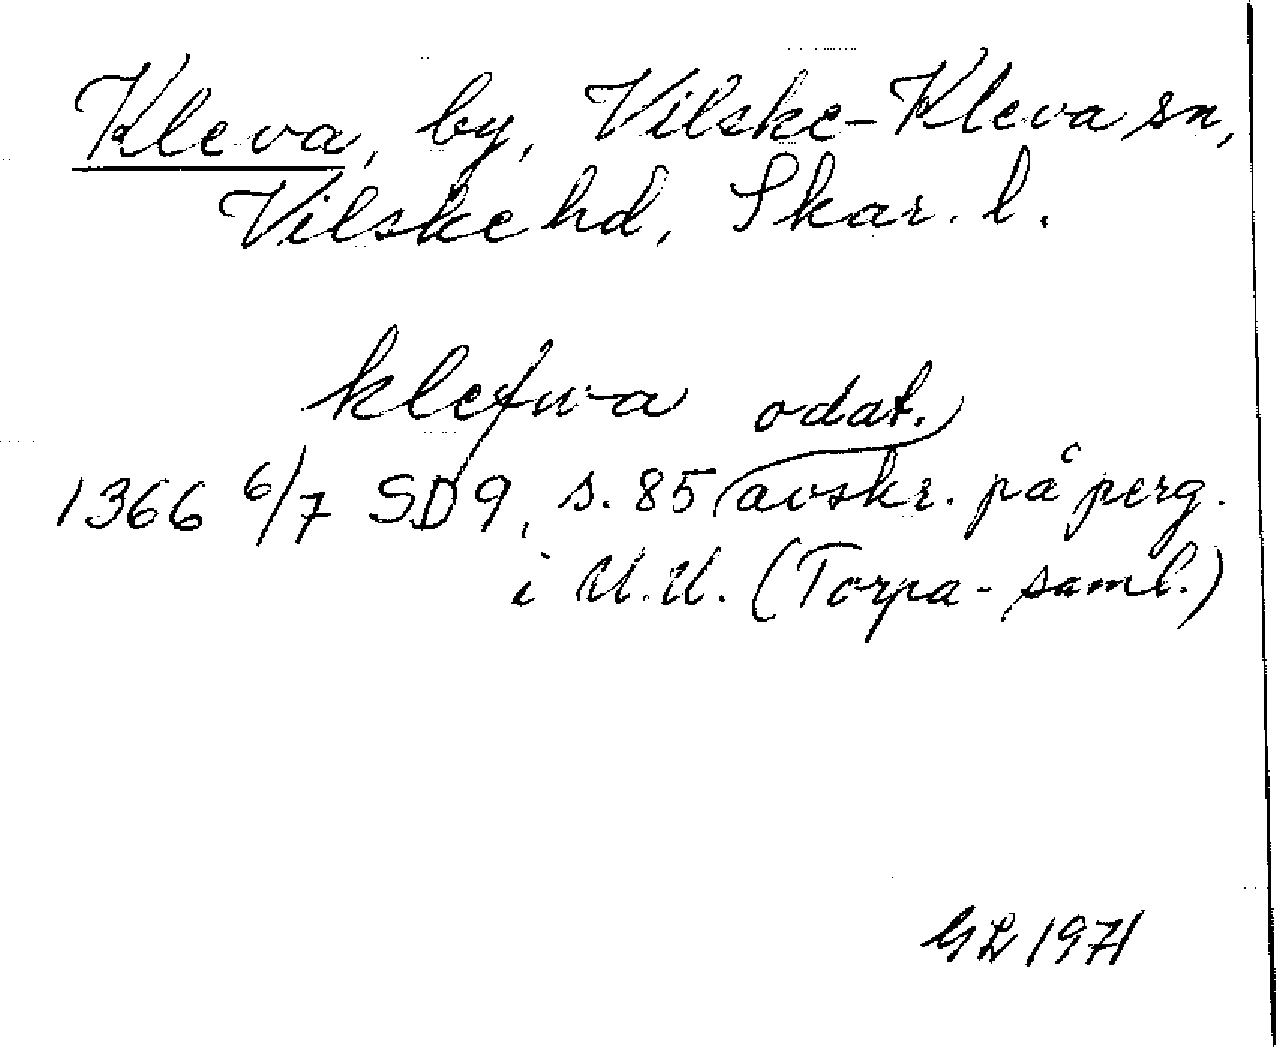 Kleva, by, Vilske-Kleva sn,
Vilske hd, Skar. l.
klefwa odat.
1366 6/7 SD 9, s. 85 avskr. på perg.
i U.U. (Torpa-saml.)
GL 1971